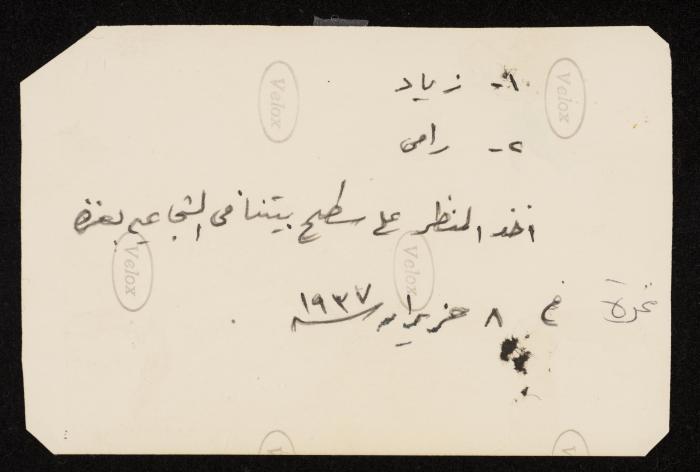 ١- زياد
٢- رامي
اخذ المنظر على سطح بيتنا في الشجاعيه بغزة
في ٨ حزيران سنة ١٩٣٧
Velox
Velox
Velox
Velox